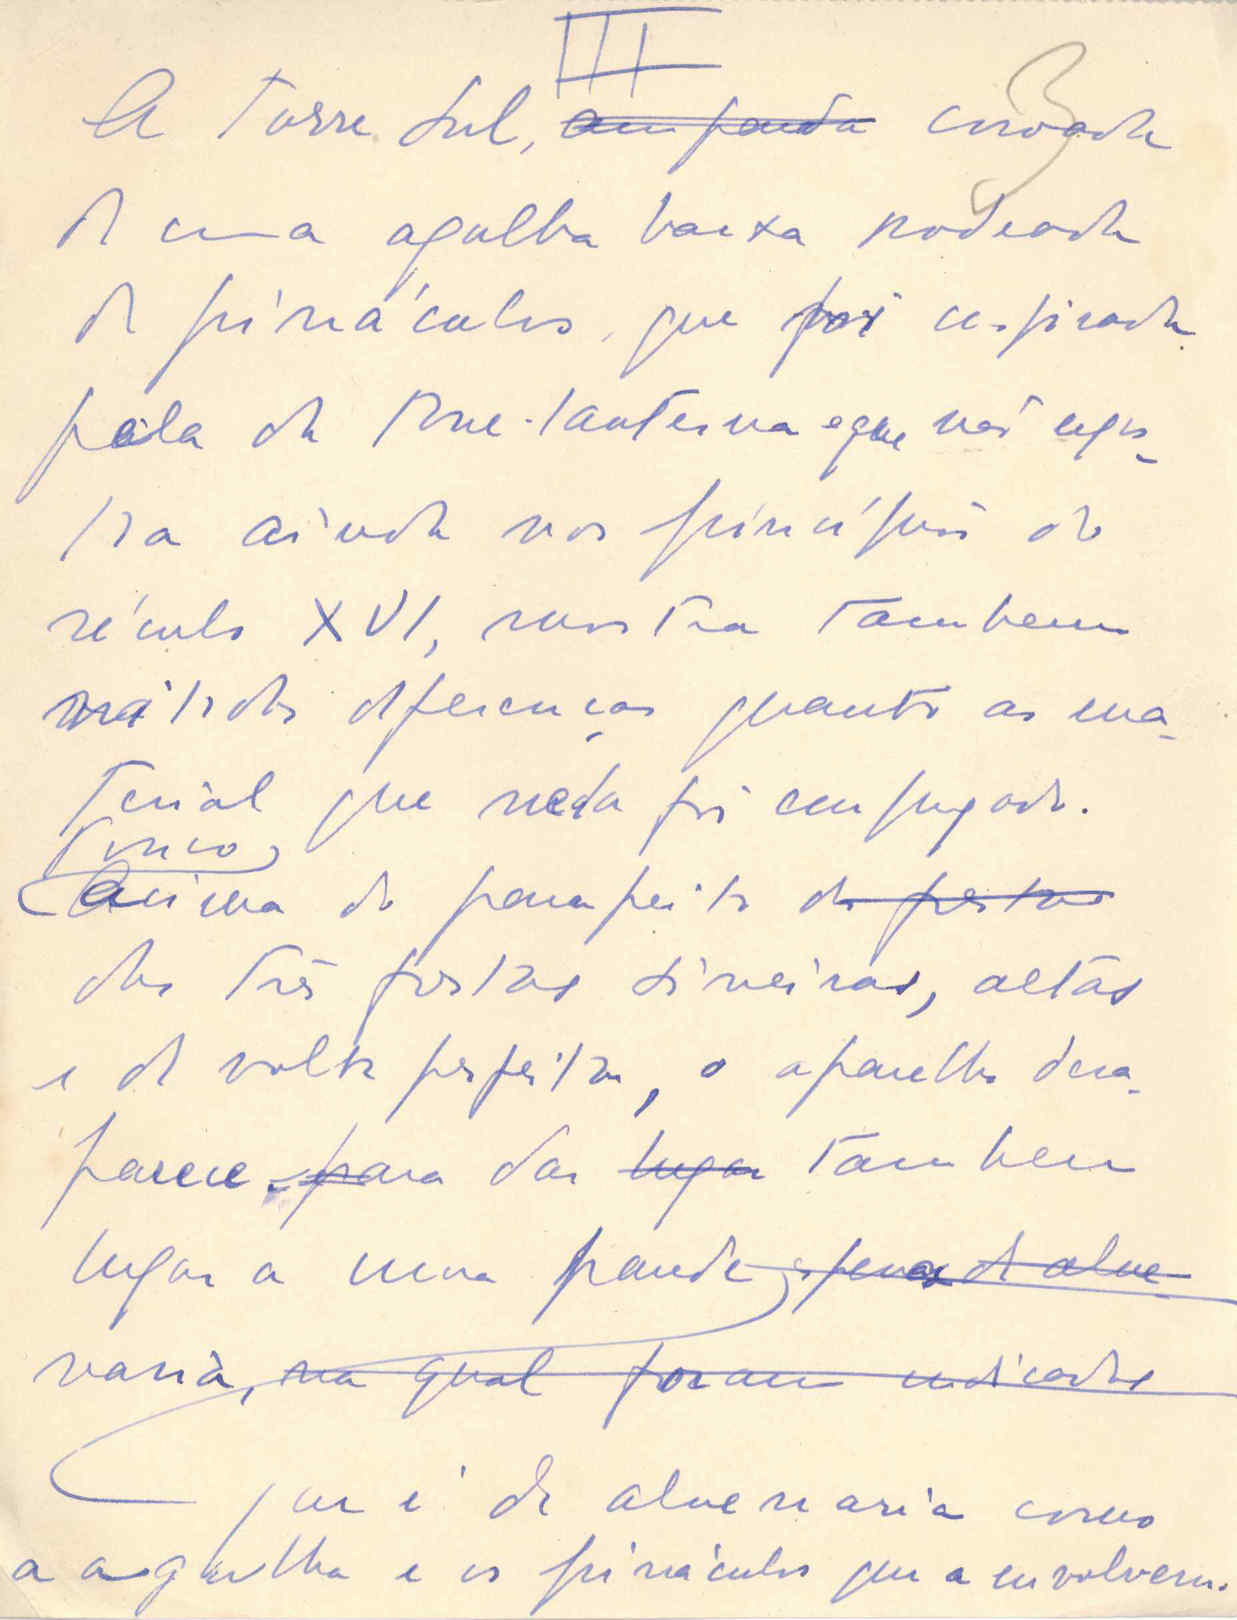 III
3
A Torre Sul, amparada coroada
de uma agulha baixa rodeada
de pináculos, que foi inspirada
pela da Torre-lanterna e que não regis-
tra ainda nos princípios do
século XVI, mostra tambem
nítidas diferenças quanto ao ma-
terial que nela foi empregado.
Cinco,
Acima do parapeito das portas
das três frestas sineiras, altas
e de volta perfeita, o aparelho desa-
parece para dar lugar tambem
lugar a uma parede apenas de alve-
varia, na qual foram indicados
que é de alvenaria como
a agulha e os pináculos que a envolvem.